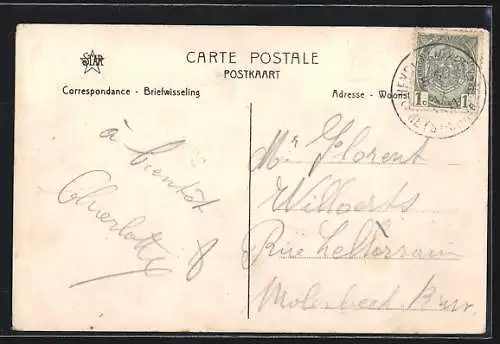 STAR
CARTE POSTALE
POSTKAART
Correspondance - Briefwisseling
Adresse - Woonst
1c 1c
à bientôt
Charlotte
Mr Florent
Willaerts
Rue
Molenbeek Brux.